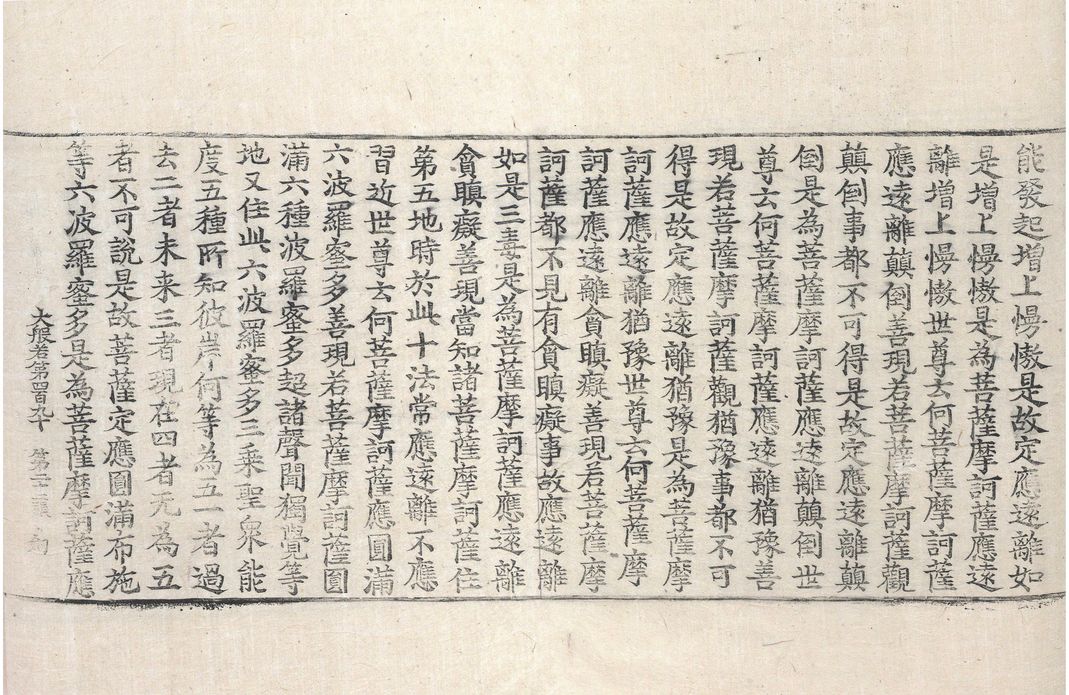 能發起增上慢慠是故定應遠離如
是增上慢慠是為菩薩摩訶薩應遠
離增上慢慠世尊云何菩薩摩訶薩
應遠離顛倒善現若菩薩摩訶薩觀
顛倒事都不可得是故定應遠離顛
倒是為菩薩摩訶薩應遠離顛倒世
尊云何菩薩摩訶薩應遠離猶豫善
現若菩薩摩訶薩觀猶豫事都不可
得是故定應遠離猶豫是為菩薩摩
訶薩應遠離猶豫世尊云何菩薩摩
訶薩應遠離貪瞋癡善現若菩薩摩
訶薩都不見有貪瞋癡事故應遠離
如是三毒是為菩薩摩訶薩應遠離
貪瞋癡善現當知諸菩薩摩訶薩住
第五地時於此十法常應遠離不應
習近世尊云何菩薩摩訶薩應圓滿
六波羅蜜多善現若菩薩摩訶薩圓
滿六種波羅蜜多超諸聲聞獨覺等
地又住此六波羅蜜多三乘聖眾能
度五種所知彼岸何等為五一者過
去二者未来三者現在四者无為五
者不可說是故菩薩定應圓滿布施
等六波羅蜜多是為菩薩摩訶薩應
大般若第四百九十 第